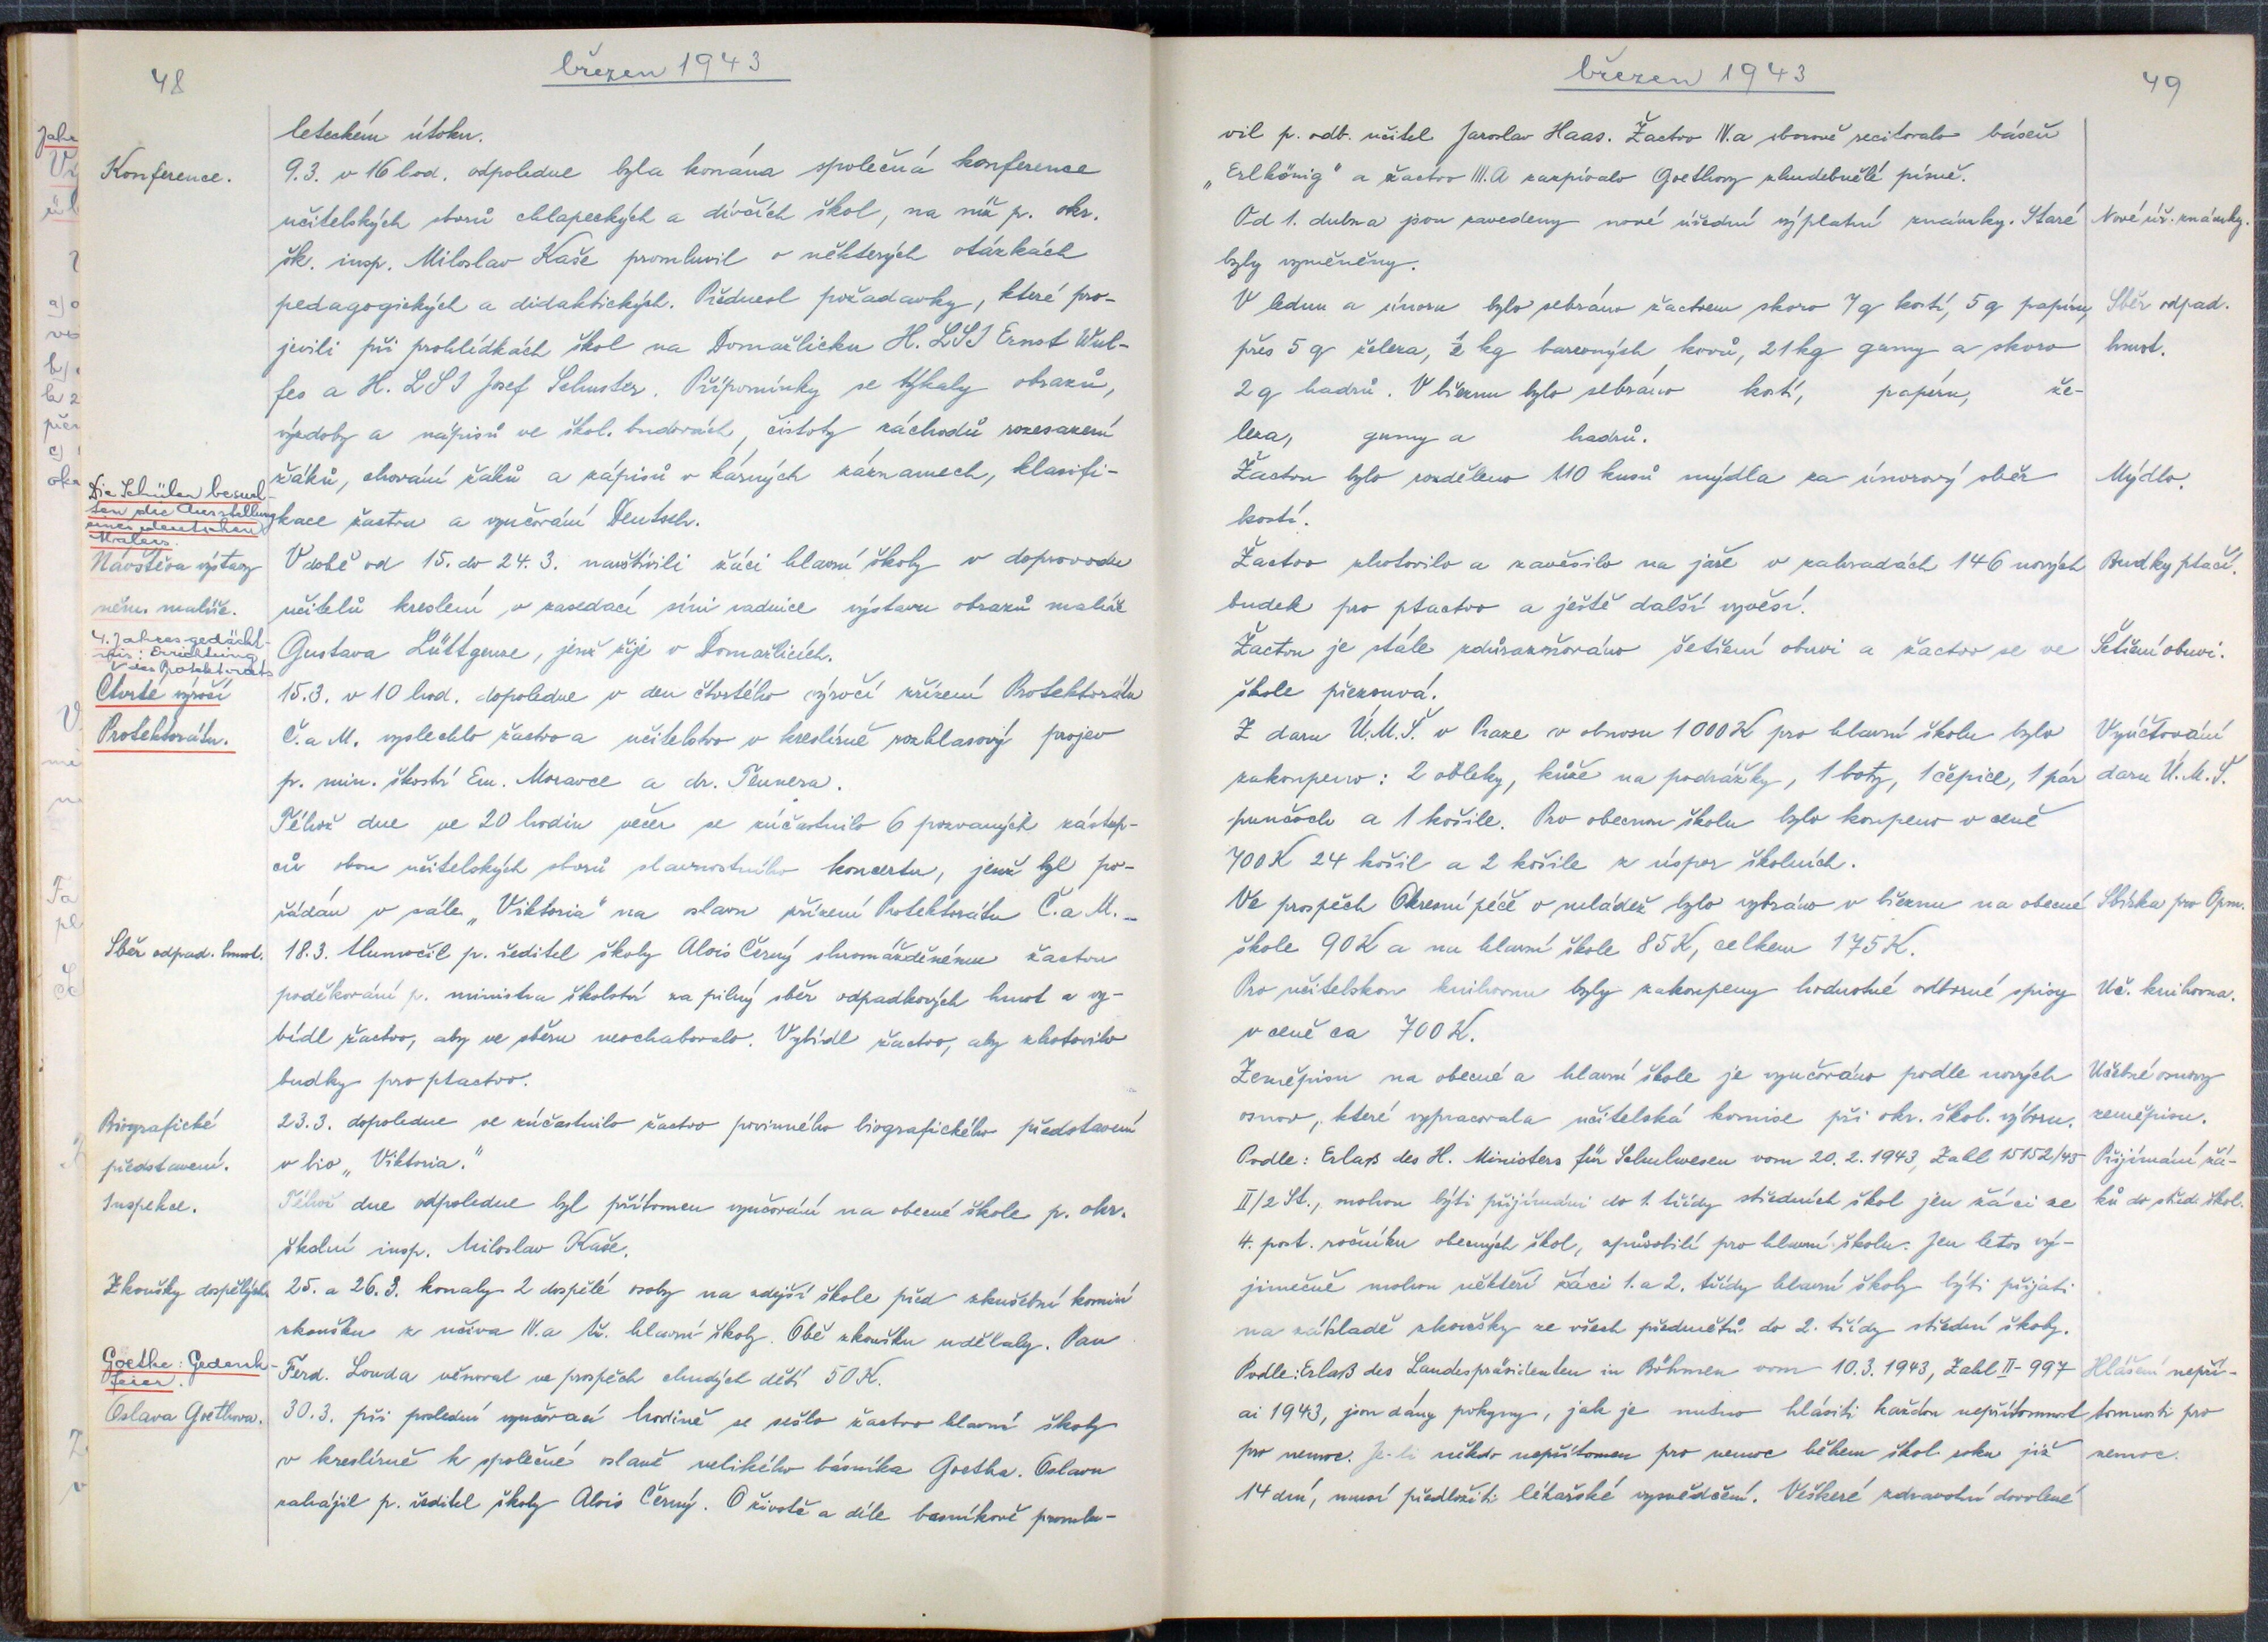 48
březen 1943
leteckém útoku.
Konference.
9.3. v 16 hod. odpoledne byla konána společná konference
učitelských sborů chlapeckých a dívčích škol, na níž p. okr.
šk. insp. Miloslav Kaše promluvil o některých otázkách
pedagogických a didaktických. Přednesl požadavky, které pro-
jevili při prohlídkách škol na Domažlicku H. LSI Ernst Wul-
fes a H. LSI Josef Schuster. Připomínky se týkaly obrazů,
výzdoby a nápisů ve škol. budovách, čistoty záchodů rozesazení
žáků, chování žáků a zápisů v kázných záznamech, klasifi-
Die Schüler besuch-
ten die Ausstellung
eines deutschen
Malers.
kace žactva a vyučování Deutsch.
Návštěva výstavy
něm. malíře.
V době od 15. do 24. 3. navštívili žáci hlavní školy v doprovodu
učitelů kreslení v zasedací síni radnice výstavu obrazů malíře
Gustava Lüttgense, jenž žije v Domažlicích.
4. Jahresgedächt-
nis: Errichtung
des Protektorats
Čtvrté výročí
Protektorátu.
15.3. v 10 hod. dopoledne v den čtvrtého výročí zřízení Protektorátu
Č. a M. vyslechlo žactvo a učitelstvo v kreslírně rozhlasový projev
p. min. škoství Em. Moravce a dr. Teunera.
Téhož dne ve 20 hodin večer se zúčastnilo 6 pozvaných zástup-
ců obou učitelských sborů slavnostního koncertu, jenž byl po-
řádán v sále „Viktoria" na oslavu zřízení Protektorátu Č. a M. –
Sběr odpad. hmot.
18.3. tlumočil p. ředitel školy Alois Černý shromážděnému žactvu
poděkování p. ministra školství za pilný sběr odpadkových hmot a vy-
bídl žactvo, aby ve sběru neochabovalo. Vybídl žactvo, aby zhotovilo
budky pro ptactvo.
Biografické
představení.
23.3. dopoledne se zúčastnilo žactvo povinného biografického představení
v bio „Viktoria."
Inspekce.
Téhož dne odpoledne byl přítomen vyučování na obecné škole p. okr.
školní insp. Miloslav Kaše.
Zkoušky dospělých.
25. a 26. 3. konaly 2 dospělé osoby na zdejší škole před zkušební komisí
zkoušku z učiva IV. a tř. hlavní školy. Obě zkoušku udělaly. Pan
Ferd. Louda věnoval ve prospěch chudých dětí 50 K.
Goethe: Gedenk-
feier.
Oslava Goethova.
30.3. při poslední vyučovací hodině se sešlo žactvo hlavní školy
v kreslírně k společné oslavě velikého básníka Goetha. Oslavu
zahájil p. ředitel školy Alois Černý. O životě a díle básníkově promlu-
březen 1943
49
vil p. odb. učitel Jaroslav Haas. Žactvo IV.a sborově recitovalo báseň
„Erlkönig" a žactvo III.A zazpívalo Goethovy zhudebnělé písně.
Od 1. dubna jsou zavedeny nové úřední výplatní známky. Staré
Nové úř. známky.
byly vyměněny.
V lednu a únoru bylo sebráno žactvem skoro 7 q kostí, 5 q papíru,
Sběr odpad.
hmot.
přes 5 q železa, ½ kg barevných kovů, 21 kg gumy a skoro
2 q hadrů. V březnu bylo sebráno kostí, papíru, že-
leza, gumy a hadrů.
Žactvu bylo rozděleno 110 kusů mýdla za únorový sběr
Mýdlo.
kostí.
Žactvo zhotovilo a zavěsilo na jaře v zahradách 146 nových
Budky ptačí.
budek pro ptactvo a ještě další vyvěsí.
Žactvu je stále zdůrazňováno šetření obuvi a žactvo se ve
Šetření obuvi.
škole přezouvá.
Z daru Ú.M.Š. v Praze v obnosu 1000 K pro hlavní školu bylo
Vyúčtování
daru Ú.M.Š.
zakoupeno: 2 obleky, kůže na podrážky, 1 boty, 1 čepice, 1 pár
punčoch a 1 košile. Pro obecnou školu bylo koupeno v ceně
700 K 24 košil a 2 košile z úspor školních.
Ve prospěch Okresní péče o mládež bylo vybráno v březnu na obecné
Sbírka pro Opm.
škole 90 K a na hlavní škole 85 K, celkem 175 K.
Pro učitelskou knihovnu byly zakoupeny hodnotné odborné spisy
Uč. knihovna.
v ceně ca 700 K.
Zeměpisu na obecné a hlavní škole je vyučováno podle nových
Učebné osnovy
zeměpisu.
osnov, které vypracovala učitelská komise při okr. škol. výboru.
Podle: Erlaß des H. Ministers für Schulwesen vom 20. 2. 1943, Zahl 15152/43
Přijímání žá-
ků do střed. škol.
II/2 St., mohou býti přijímáni do 1. třídy středních škol jen žáci ze
4. post. ročníku obecných škol, způsobilí pro hlavní školu. Jen letos vý-
jimečně mohou někteří žáci 1. a 2. třídy hlavní školy býti přijati
na základě zkoušky ze všech předmětů do 2. třídy střední školy.
Podle: Erlaß des Landespräsidenten in Böhmen vom 10. 3. 1943, Zahl II-997
Hlášení nepří-
tomnosti pro
nemoc.
ai 1943, jsou dány pokyny, jak je nutno hlásiti každou nepřítomnost
pro nemoc. Je-li někdo nepřítomen pro nemoc během škol. roku již
14 dní, musí předložiti lékařské vysvědčení. Veškeré zdravotní dovolené